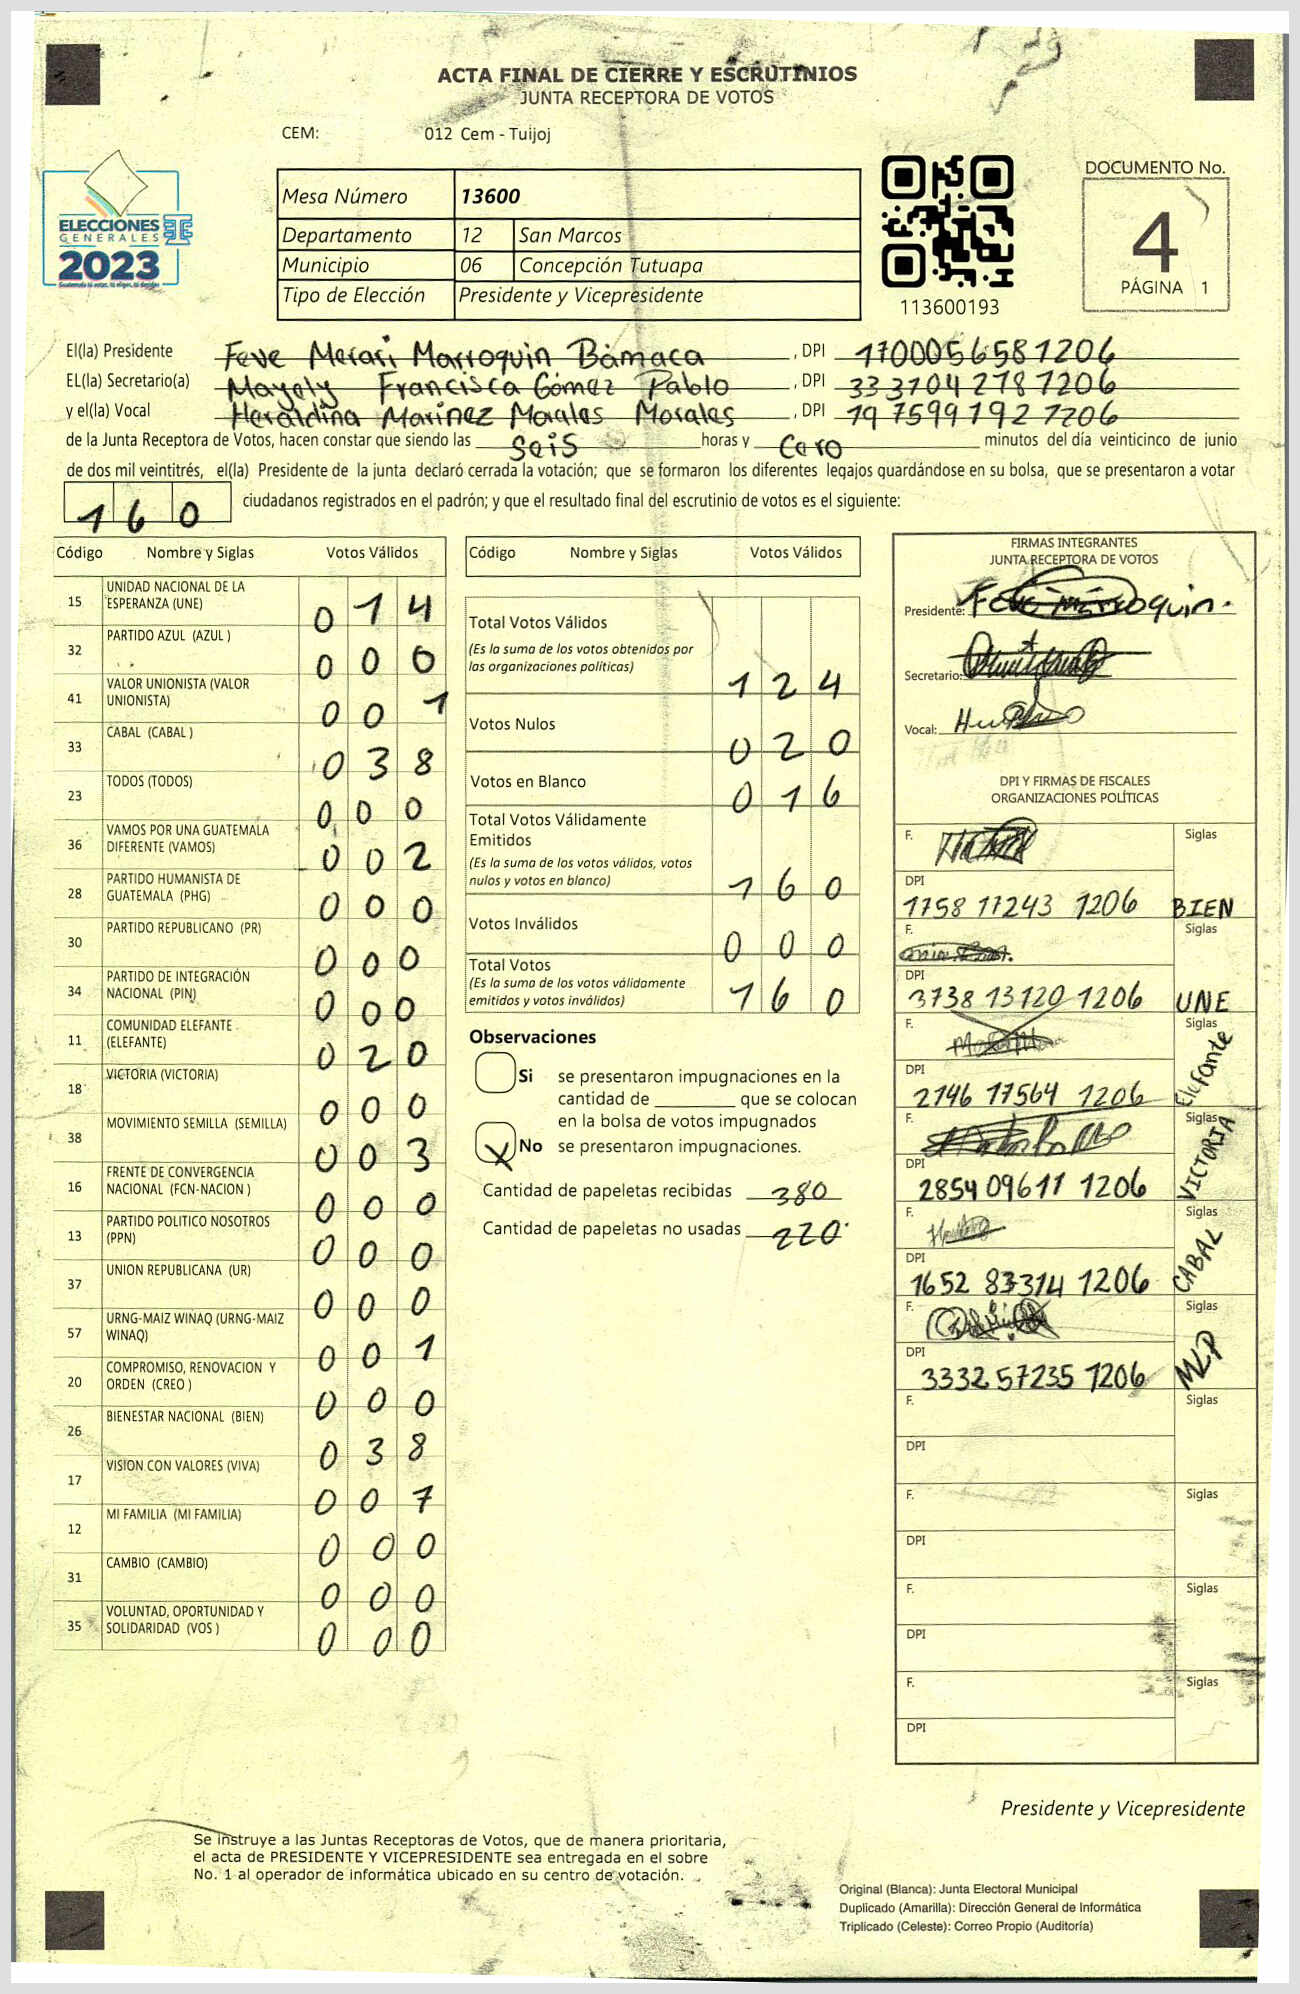 ACTA FINAL DE CIERRE Y ESCRUTINIOS
JUNTA RECEPTORA DE VOTOS
CEM: 012 Cem - Tuijoj
ELECCIONES
GENERALES
2023
Mesa Número 13600
Departamento 12 San Marcos
Municipio 06 Concepción Tutuapa
Tipo de Elección Presidente y Vicepresidente
113600193
DOCUMENTO No.
4
PÁGINA 1
El(la) Presidente Feve Merari Marroquin Bámaca , DPI 1700056581206
EL(la) Secretario(a) Mayely Francisca Gómez Pablo , DPI 333704278 1206
y el(la) Vocal Heraldina Marinez Morales Morales , DPI 197599192 1206
de la Junta Receptora de Votos, hacen constar que siendo las Seis horas y Cero minutos del día veinticinco de junio
de dos mil veintitrés, el(la) Presidente de la junta declaró cerrada la votación; que se formaron los diferentes legajos guardándose en su bolsa, que se presentaron a votar
160 ciudadanos registrados en el padrón; y que el resultado final del escrutinio de votos es el siguiente:
Código Nombre y Siglas Votos Válidos
15 UNIDAD NACIONAL DE LA ESPERANZA (UNE) 014
32 PARTIDO AZUL (AZUL ) 000
41 VALOR UNIONISTA (VALOR UNIONISTA) 001
33 CABAL (CABAL ) 038
23 TODOS (TODOS) 000
36 VAMOS POR UNA GUATEMALA DIFERENTE (VAMOS) 002
28 PARTIDO HUMANISTA DE GUATEMALA (PHG) 000
30 PARTIDO REPUBLICANO (PR) 000
34 PARTIDO DE INTEGRACIÓN NACIONAL (PIN) 000
11 COMUNIDAD ELEFANTE (ELEFANTE) 020
18 VICTORIA (VICTORIA) 000
38 MOVIMIENTO SEMILLA (SEMILLA) 003
16 FRENTE DE CONVERGENCIA NACIONAL (FCN-NACION ) 000
13 PARTIDO POLITICO NOSOTROS (PPN) 000
37 UNION REPUBLICANA (UR) 000
57 URNG-MAIZ WINAQ (URNG-MAIZ WINAQ) 001
20 COMPROMISO, RENOVACION Y ORDEN (CREO ) 000
26 BIENESTAR NACIONAL (BIEN) 038
17 VISION CON VALORES (VIVA) 007
12 MI FAMILIA (MI FAMILIA) 000
31 CAMBIO (CAMBIO) 000
35 VOLUNTAD, OPORTUNIDAD Y SOLIDARIDAD (VOS ) 000
Código Nombre y Siglas Votos Válidos
Total Votos Válidos 124
(Es la suma de los votos obtenidos por
las organizaciones políticas)
Votos Nulos 020
Votos en Blanco 016
Total Votos Válidamente
Emitidos 160
(Es la suma de los votos válidos, votos
nulos y votos en blanco)
Votos Inválidos 000
Total Votos 160
(Es la suma de los votos válidamente
emitidos y votos inválidos)
Observaciones
Si se presentaron impugnaciones en la
cantidad de ________ que se colocan
en la bolsa de votos impugnados
X No se presentaron impugnaciones.
Cantidad de papeletas recibidas 380
Cantidad de papeletas no usadas 220
FIRMAS INTEGRANTES
JUNTA RECEPTORA DE VOTOS
Presidente:
Secretario:
Vocal:
DPI Y FIRMAS DE FISCALES
ORGANIZACIONES POLÍTICAS
F. Siglas
DPI 1758 17243 1206 BIEN
F. Siglas
DPI 3738 13120 1206 UNE
F. Siglas
DPI 2146 17564 1206 Elefante
F. Siglas
DPI 2854 09611 1206 VICTORIA
F. Siglas
DPI 1652 83314 1206 CABAL
F. Siglas
DPI 3332 57235 1206 MLP
F. Siglas
DPI
F. Siglas
DPI
F. Siglas
DPI
F. Siglas
DPI
Presidente y Vicepresidente
Se instruye a las Juntas Receptoras de Votos, que de manera prioritaria,
el acta de PRESIDENTE Y VICEPRESIDENTE sea entregada en el sobre
No. 1 al operador de informática ubicado en su centro de votación.
Original (Blanca): Junta Electoral Municipal
Duplicado (Amarilla): Dirección General de Informática
Triplicado (Celeste): Correo Propio (Auditoría)